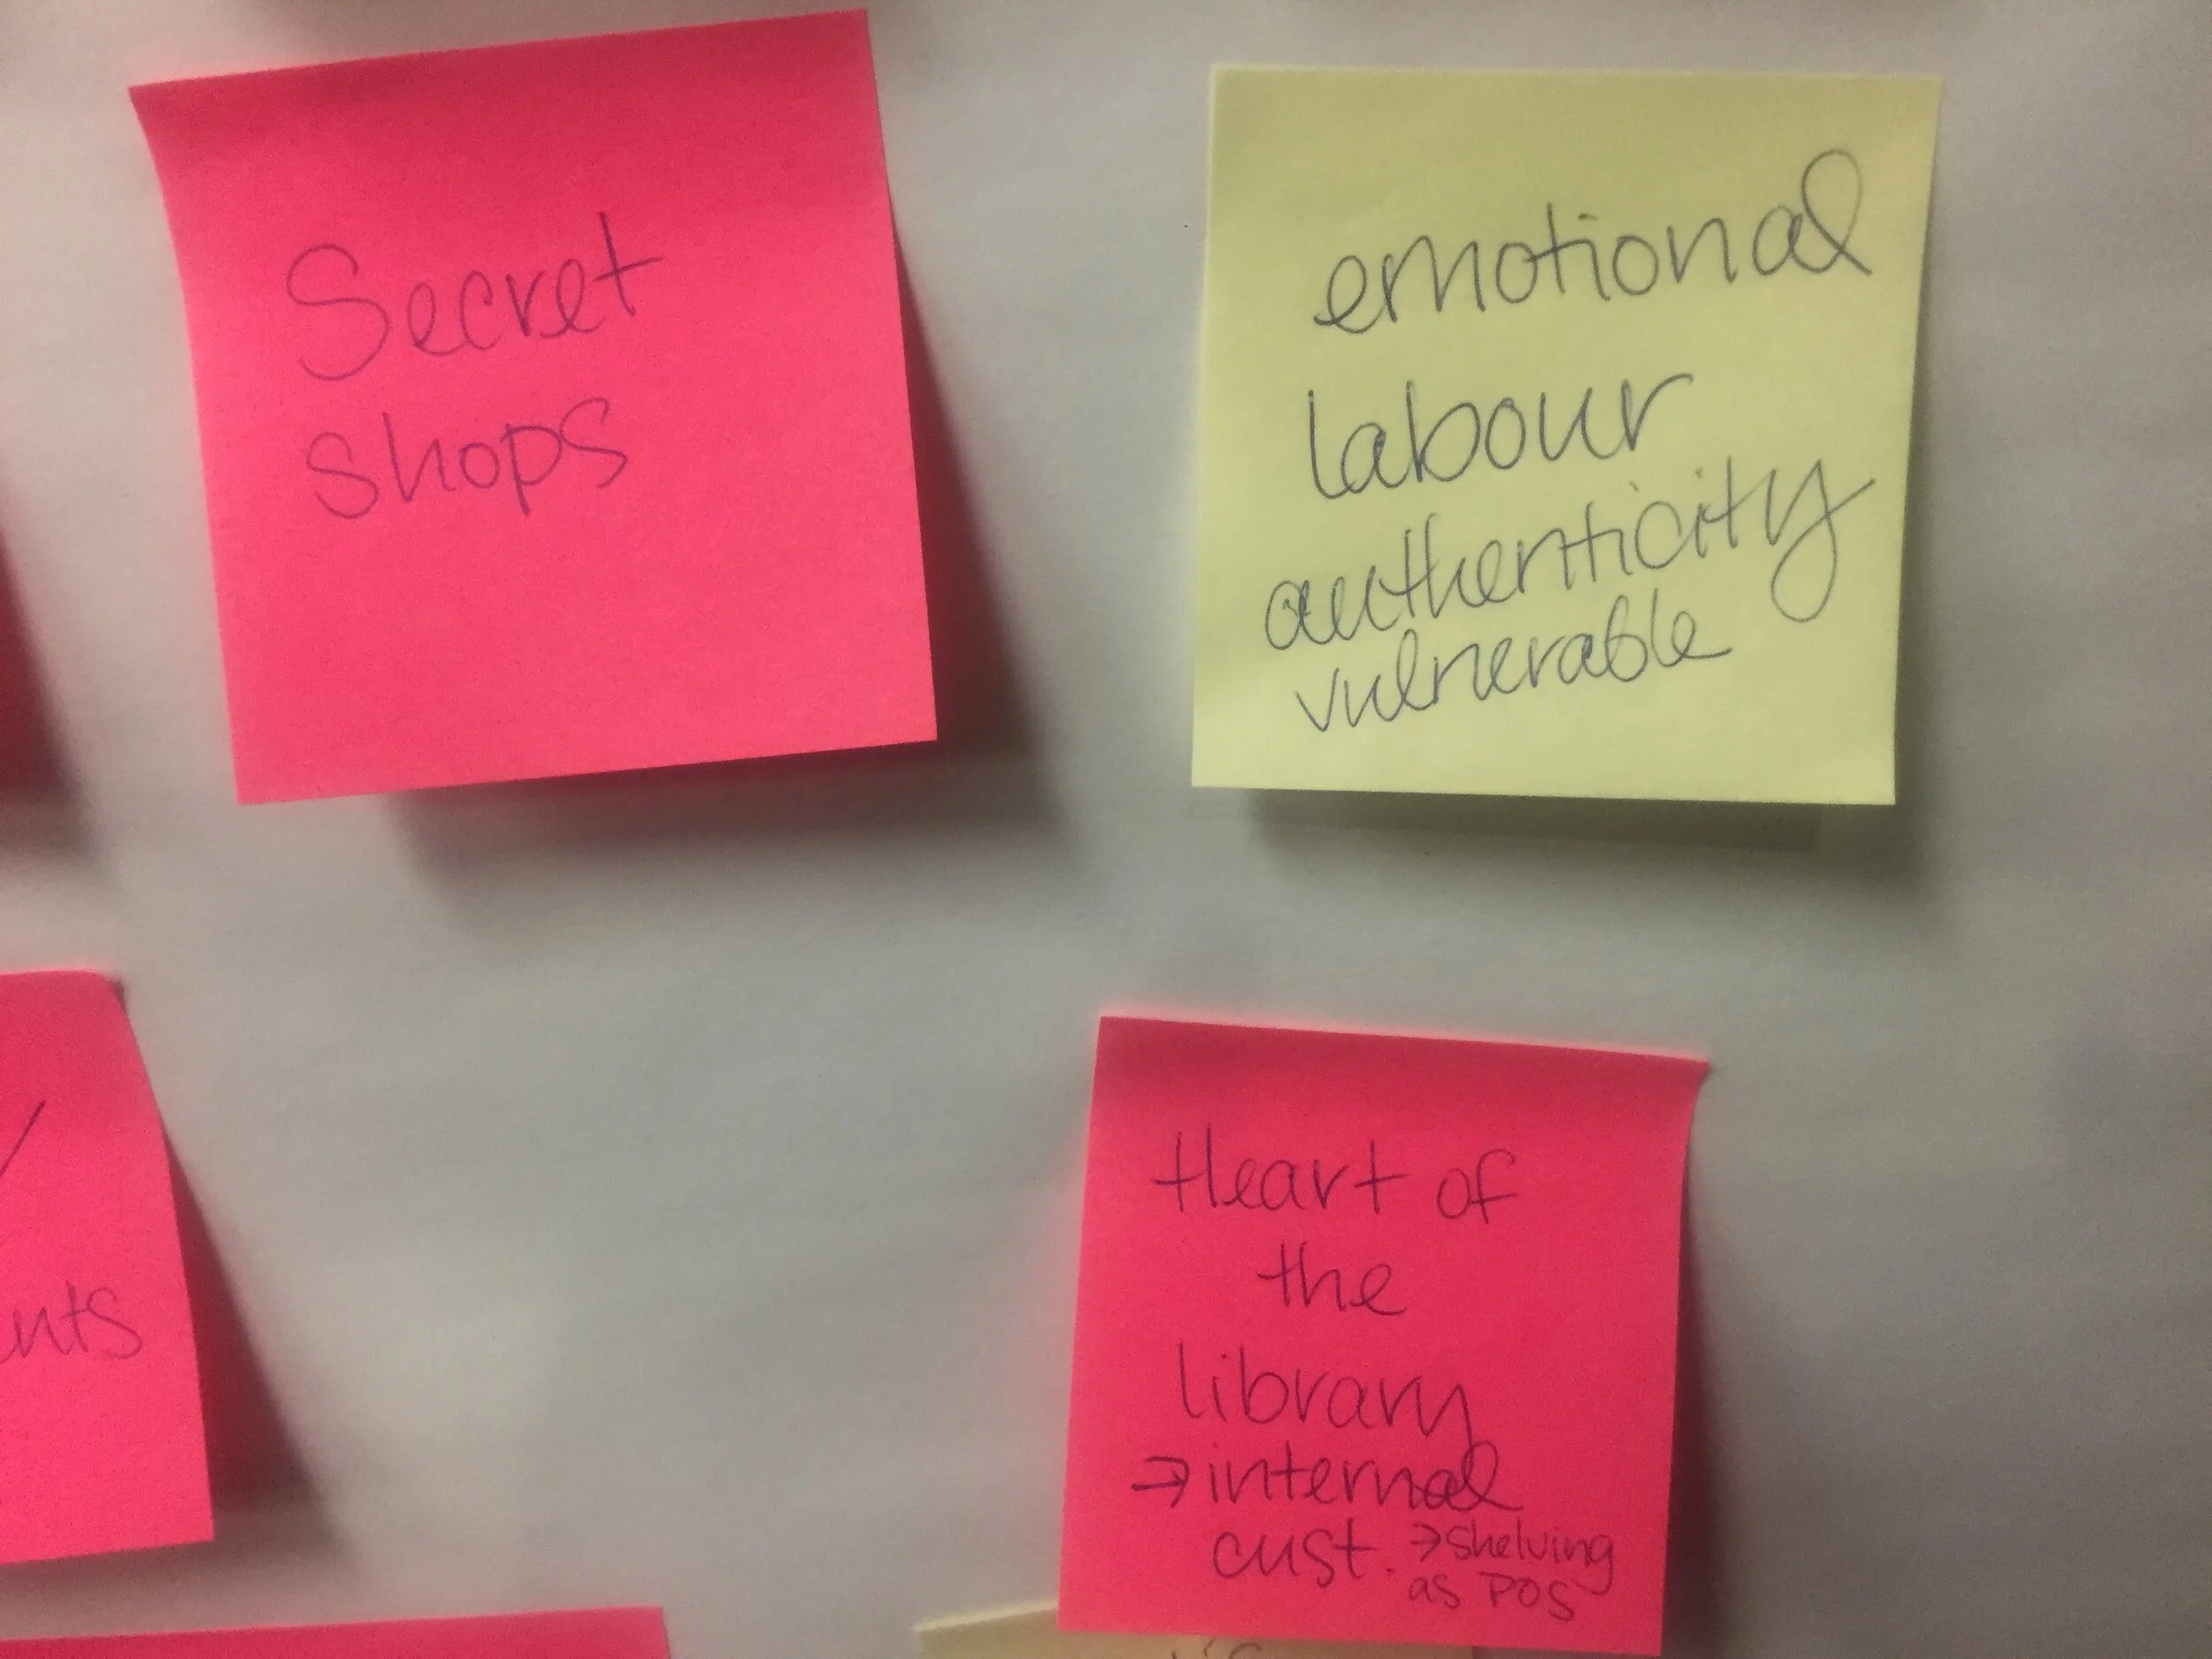 Secret
shops
emotional
labour
authenticity
vulnerable
nts
Heart of
the
library
→ internal
cust. → shelving
as POS